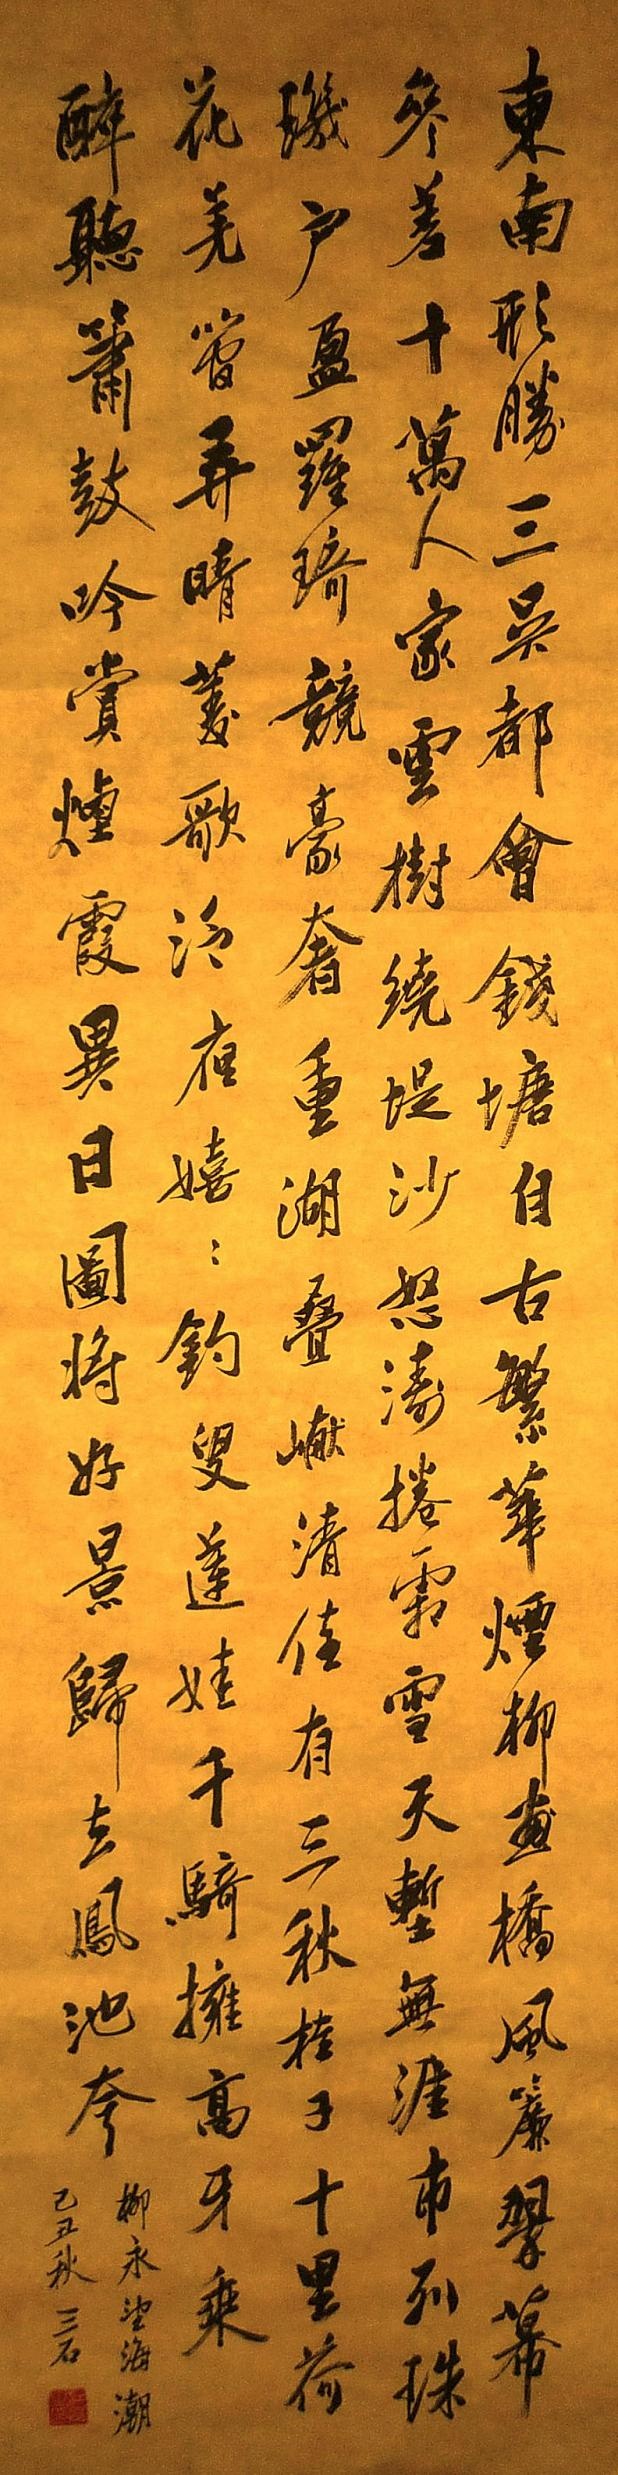 東南形勝三吳都會錢塘自古繁華煙柳畫橋風簾翠幕
參差十萬人家雲樹繞堤沙怒濤捲霜雪天塹無涯市列珠
璣户盈羅琦競豪奢重湖疊巘清佳有三秋桂子十里荷
花羌管弄晴菱歌泛夜嬉〻釣叟蓮娃千騎擁高牙乘
醉聽簫鼓吟賞煙霞異日圖將好景歸去鳳池夸
柳永望海潮
己丑秋三石